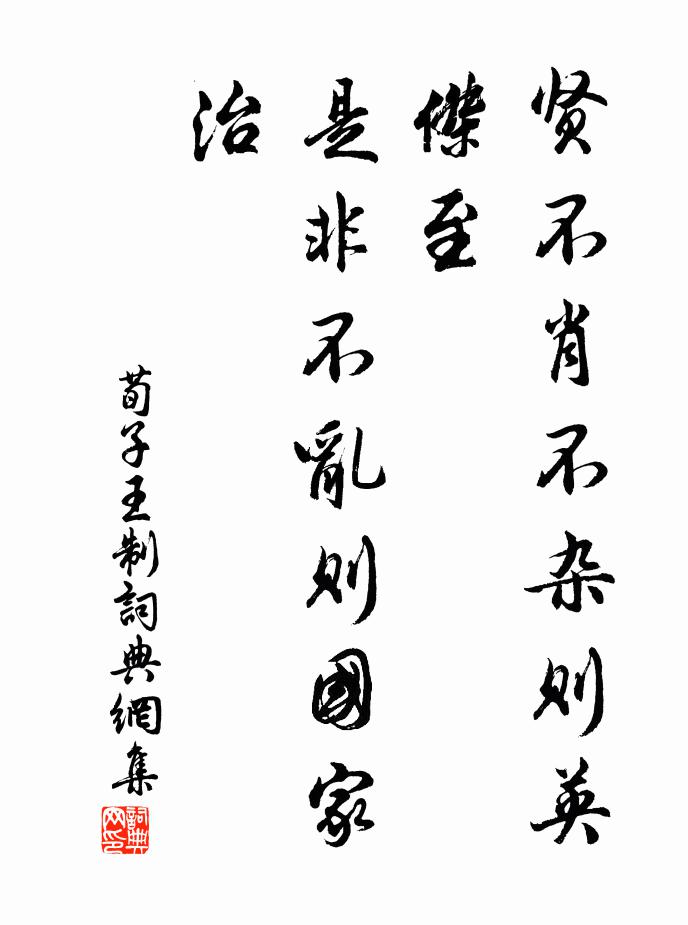 贤不肖不杂则英
傑至
是非不亂则國家
治
荀子王制詞典網集
詞典
网印